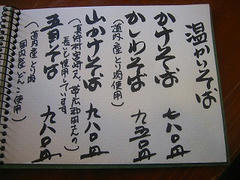 温かいそば
かけそば 七八〇円
かしわそば 九五〇円
(道内産とり肉使用)
山かけそば 九八〇円
長いも使用しています)
五目そば 九八〇円
(道内産とり肉